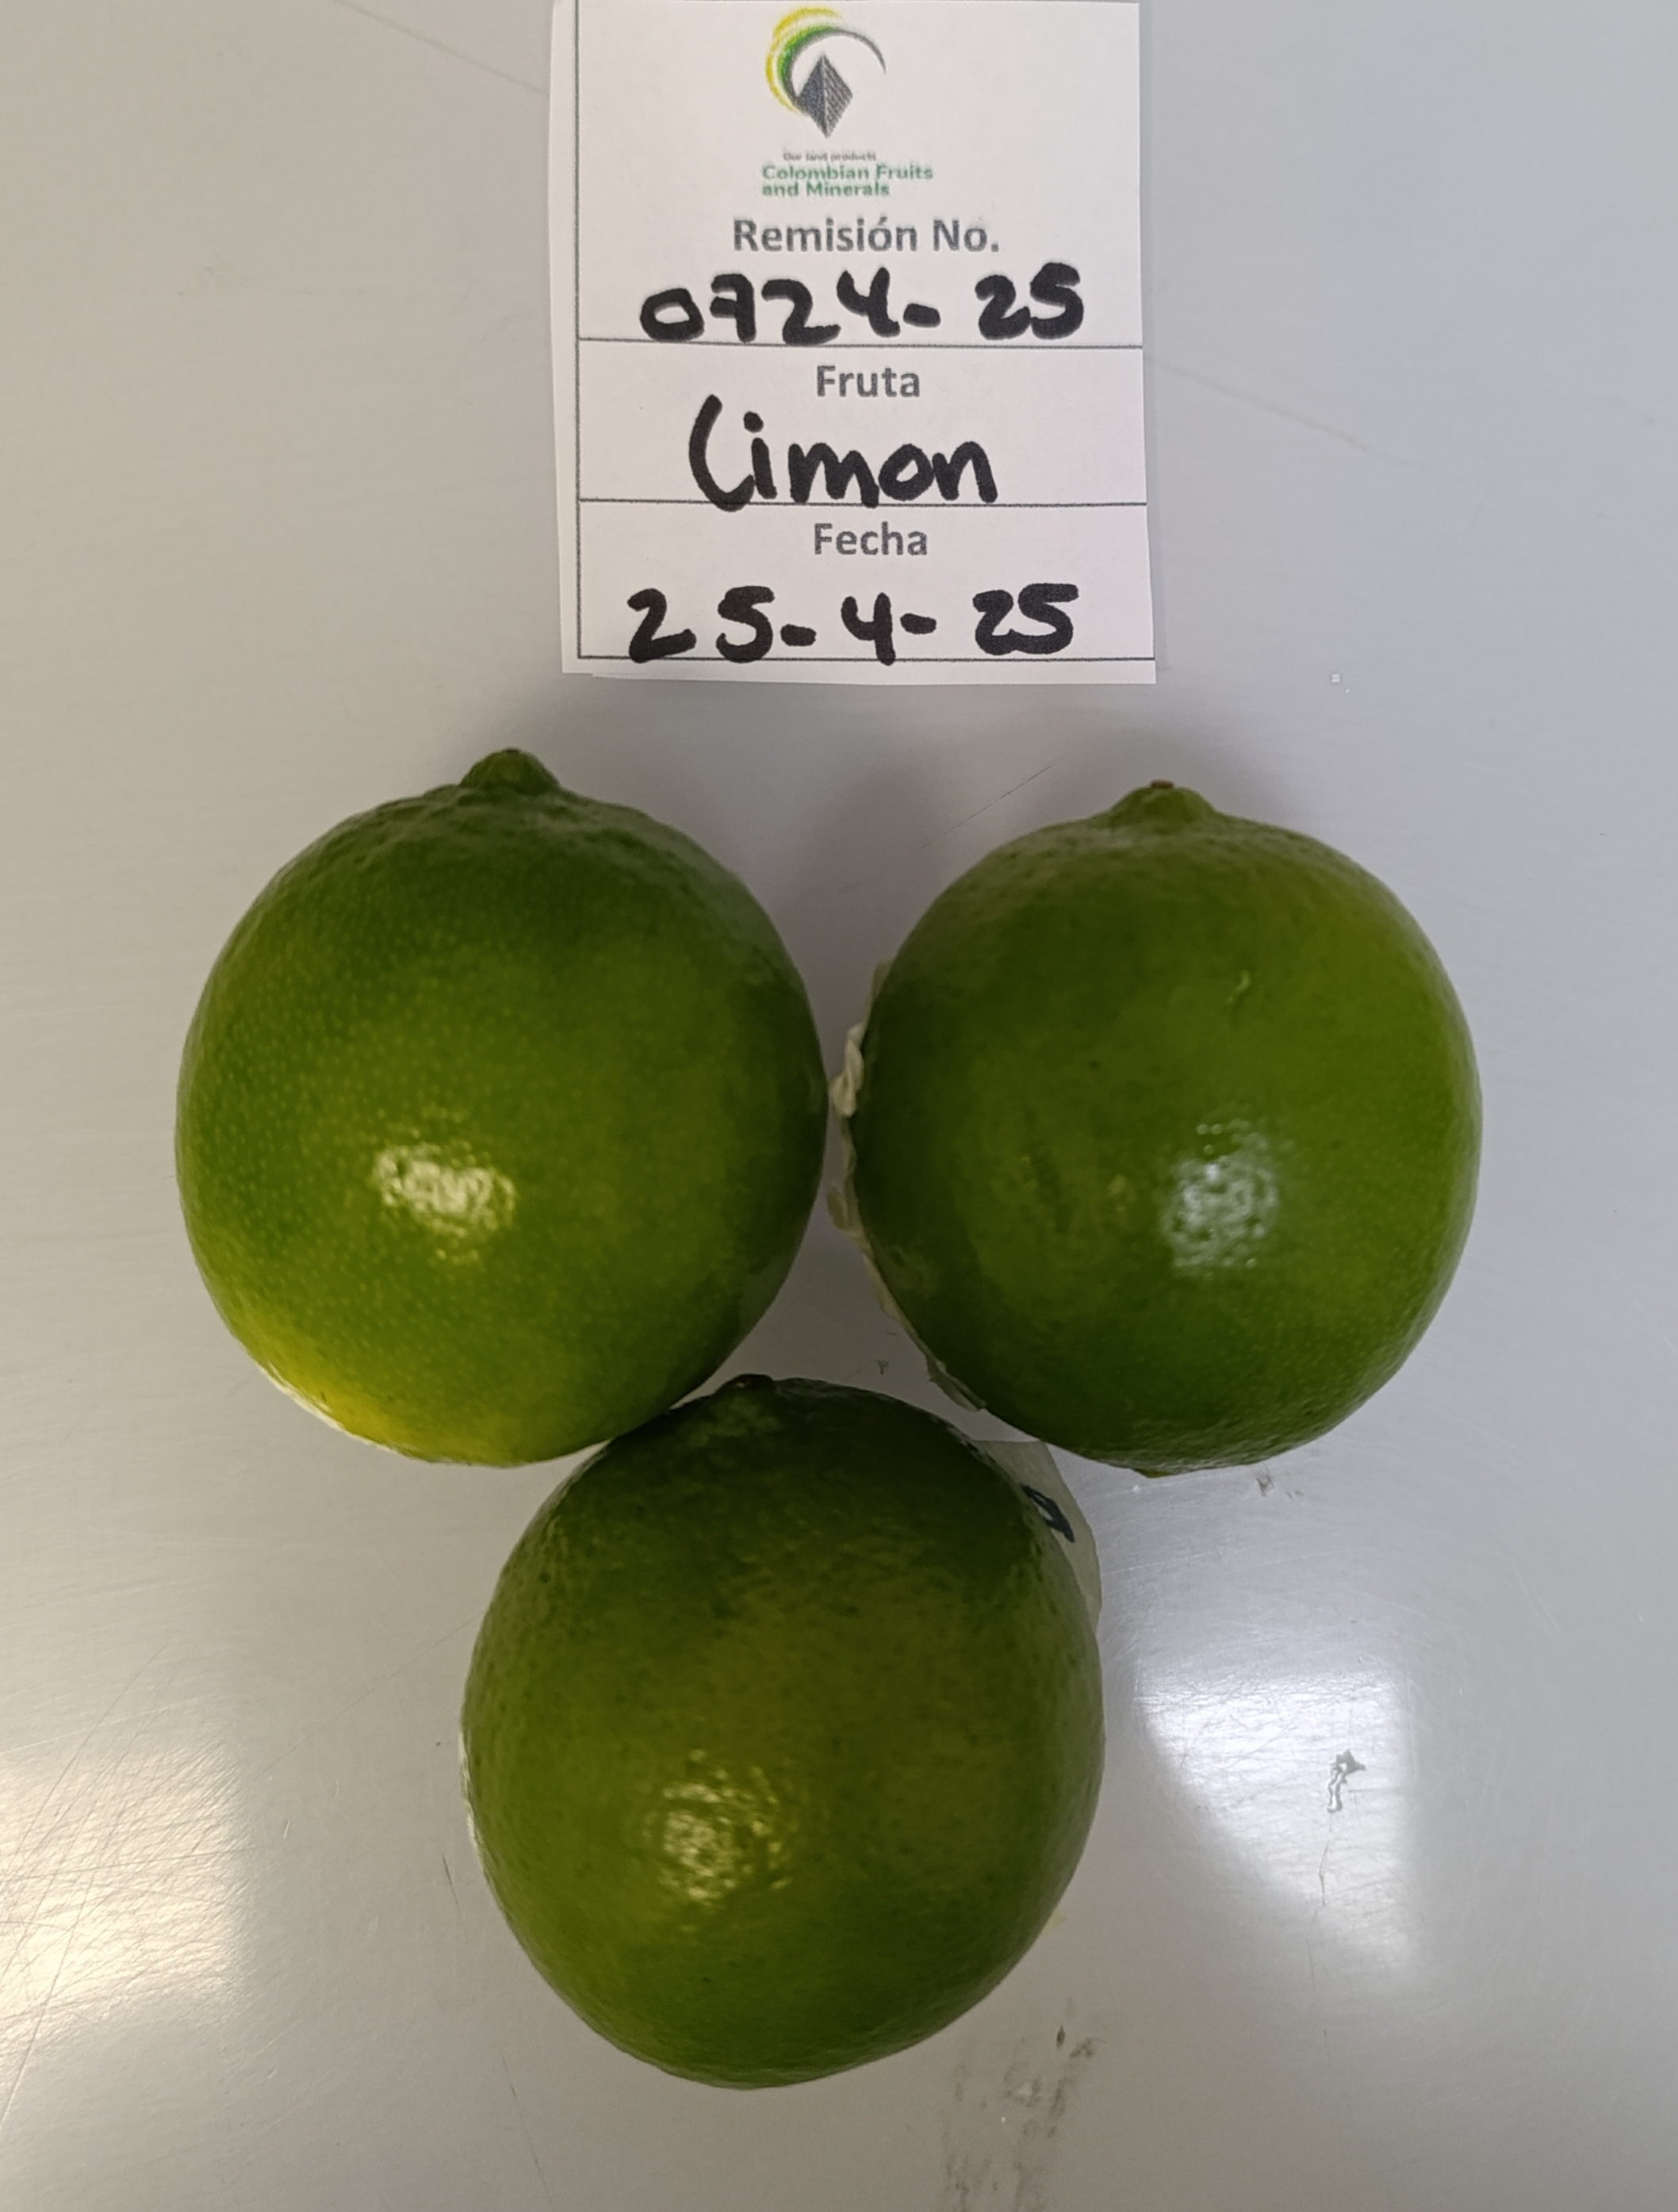 Our land products
Colombian Fruits
and Minerals
Remisión No.
0724-25
Fruta
Limon
Fecha
25-4-25